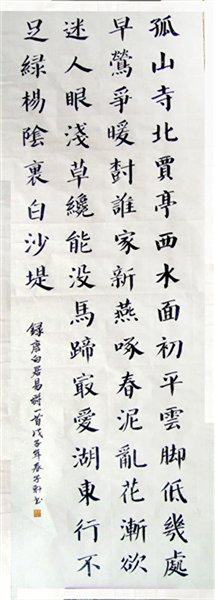 孤山寺北賈亭西水面初平雲脚低幾處
早鶯爭暖樹誰家新燕啄春泥亂花漸欲
迷人眼淺草纔能没馬蹄最愛湖東行不
足緑楊陰裏白沙堤
録唐白居易詩一首戊子年春